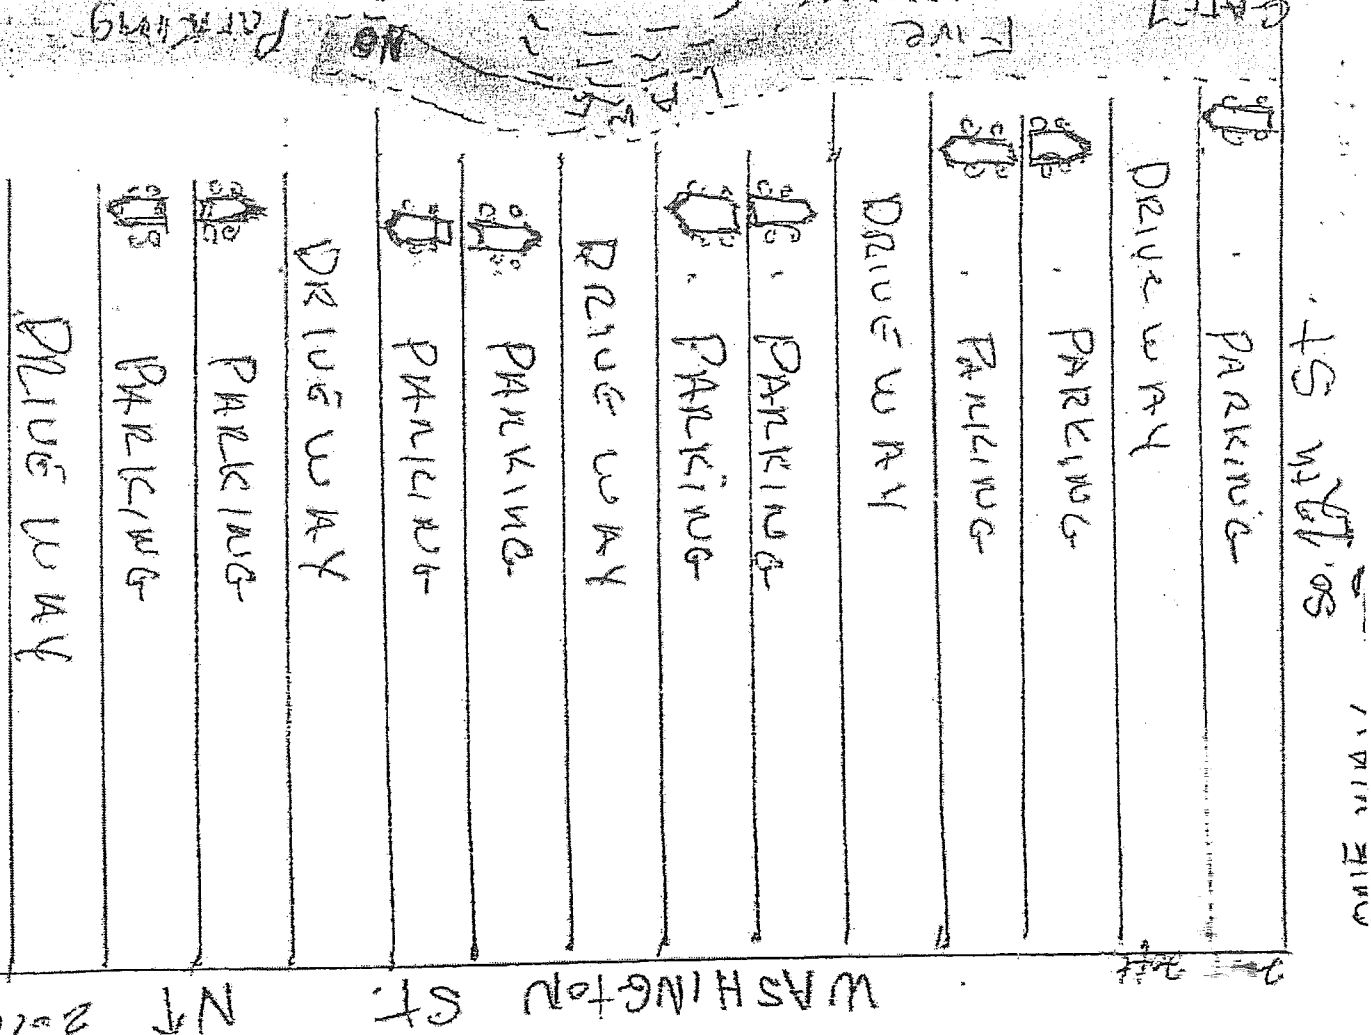 Parking
No
Fire
DRIVE WAY
PARKING
PARKING
DRIVE WAY
PARKING
PARKING
DRIVE WAY
PARKING
PARKING
DRIVE WAY
PARKING
PARKING
DRIVE WAY
PARKING
So. St
20ft
WASHINGTON ST.